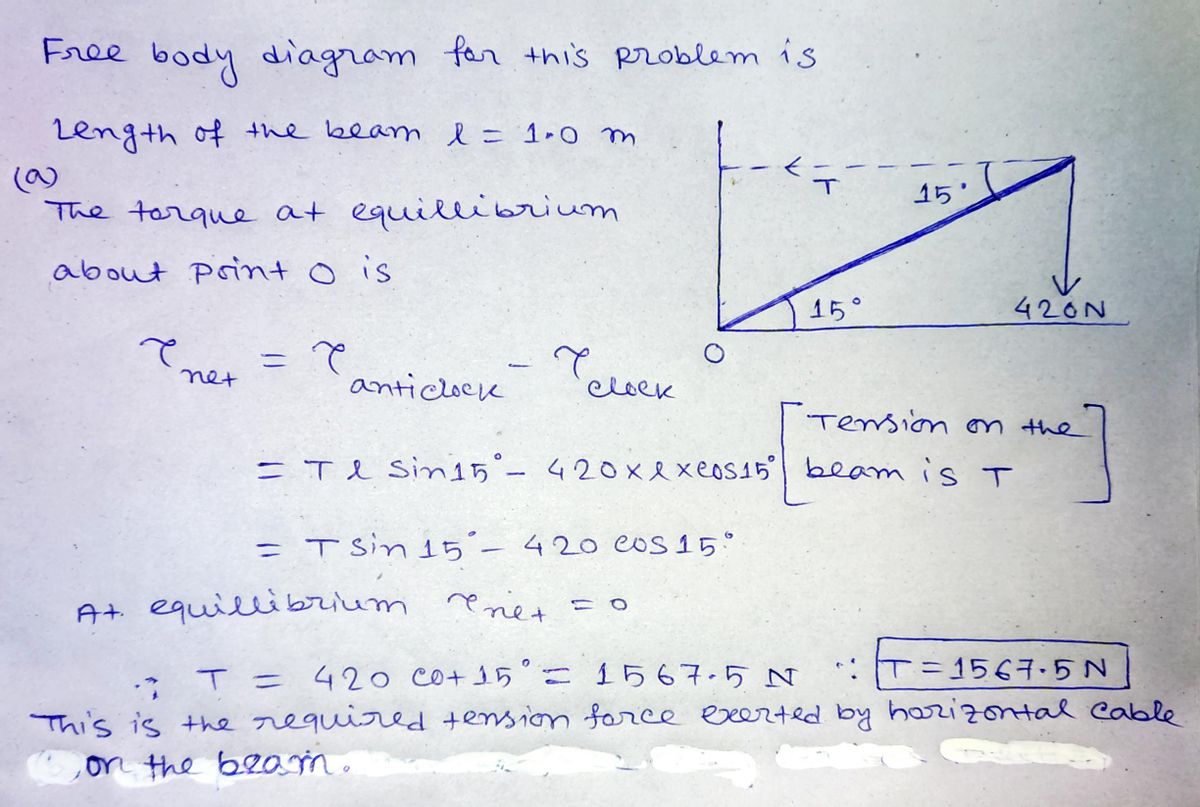 Free body diagram for this problem is
Length of the beam l = 1.0 m
(a)
The torque at equillibrium
about point O is
T
15°
15°
420N
O
τnet = τanticlock - τclock
= T l sin15° - 420×l×cos15° [Tension on the
beam is T]
= T sin 15° - 420 cos 15°
At equillibrium τnet = 0
∴ T = 420 cot 15° = 1567.5 N ∴ T = 1567.5 N
This is the required tension force exerted by horizontal cable
, on the beam.